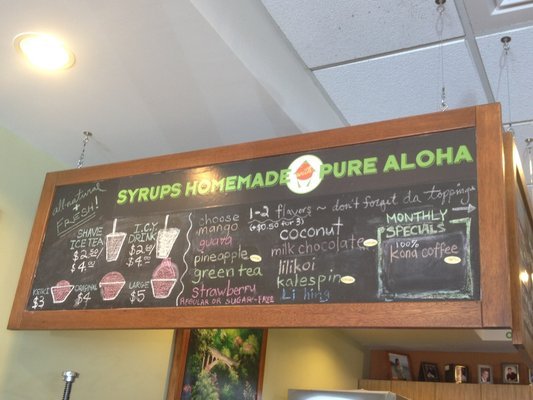 SYRUPS HOMEMADE PURE ALOHA
all natural
+
FRESH!
SHAVE
ICE TEA
I.C.Y
DRINK
$4.00
$4.00
KEIKI
$3
ORIGINAL
$4
LARGE
$5
choose 1-2 flavors ~ don't forget da toppings
(+$0.50 for 3)
mango
guava
pineapple
green tea
strawberry
REGULAR OR SUGAR-FREE
coconut
milk chocolate
lilikoi
kalespin
Li hing
MONTHLY
SPECIALS
100%
Kona coffee